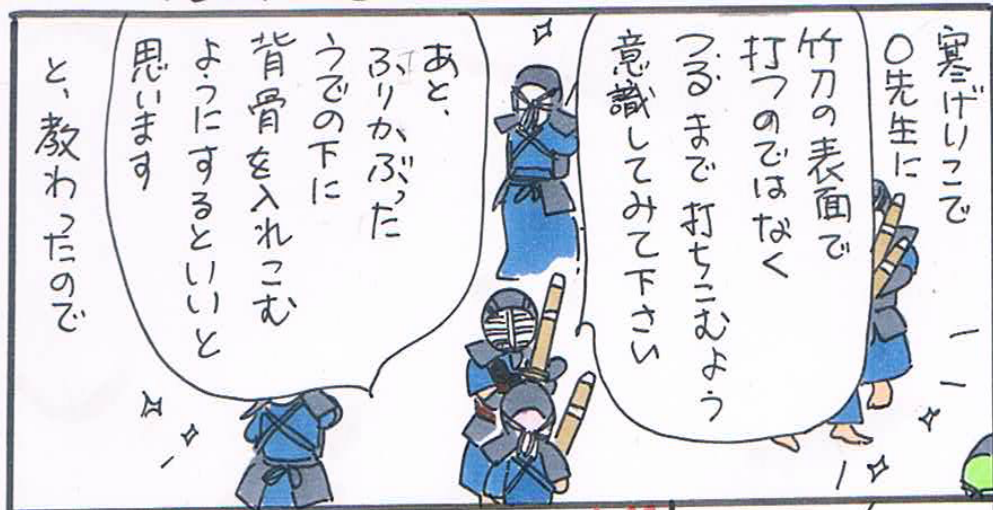 寒げいこで
〇先生に
竹刀の表面で
打つのではなく
つるまで打ちこむよう
意識してみて下さい
あと、
ふりかぶった
うでの下に
背骨を入れこむ
ようにするといいと
思います
と、教わったので